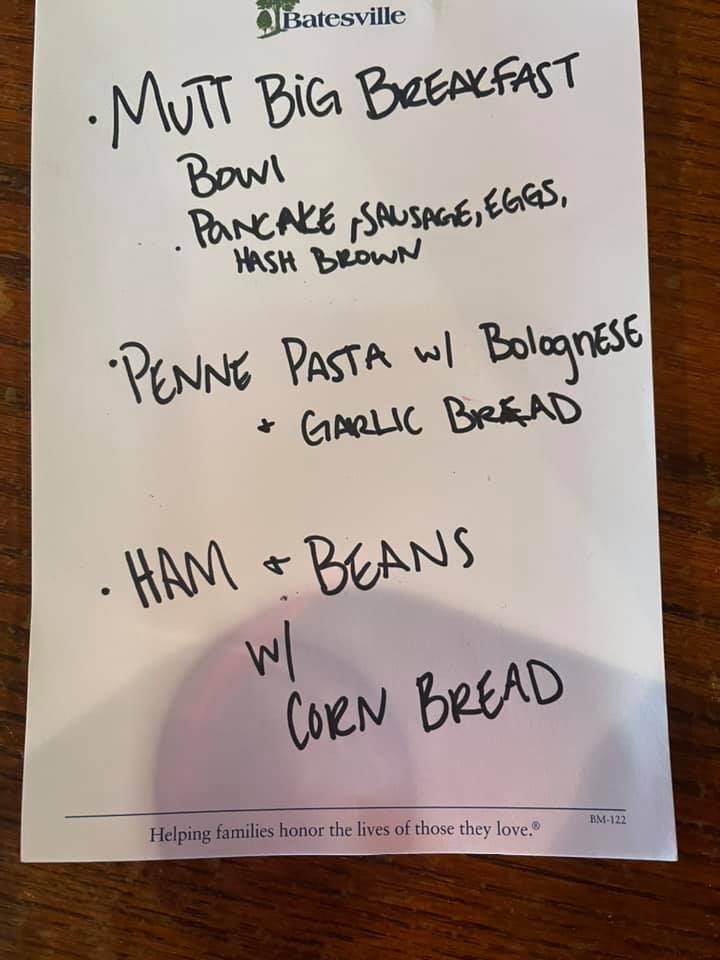 Batesville
· MUTT BiG BREAKFAST
Bowl
· PANCAKE, SAUSAGE, EGGS,
HASH BROWN
· PENNE PASTA w/ BologNESE
+ GARLIC BREAD
· HAM + BEANS
w/
CORN BREAD
BM-122
Helping families honor the lives of those they love.®